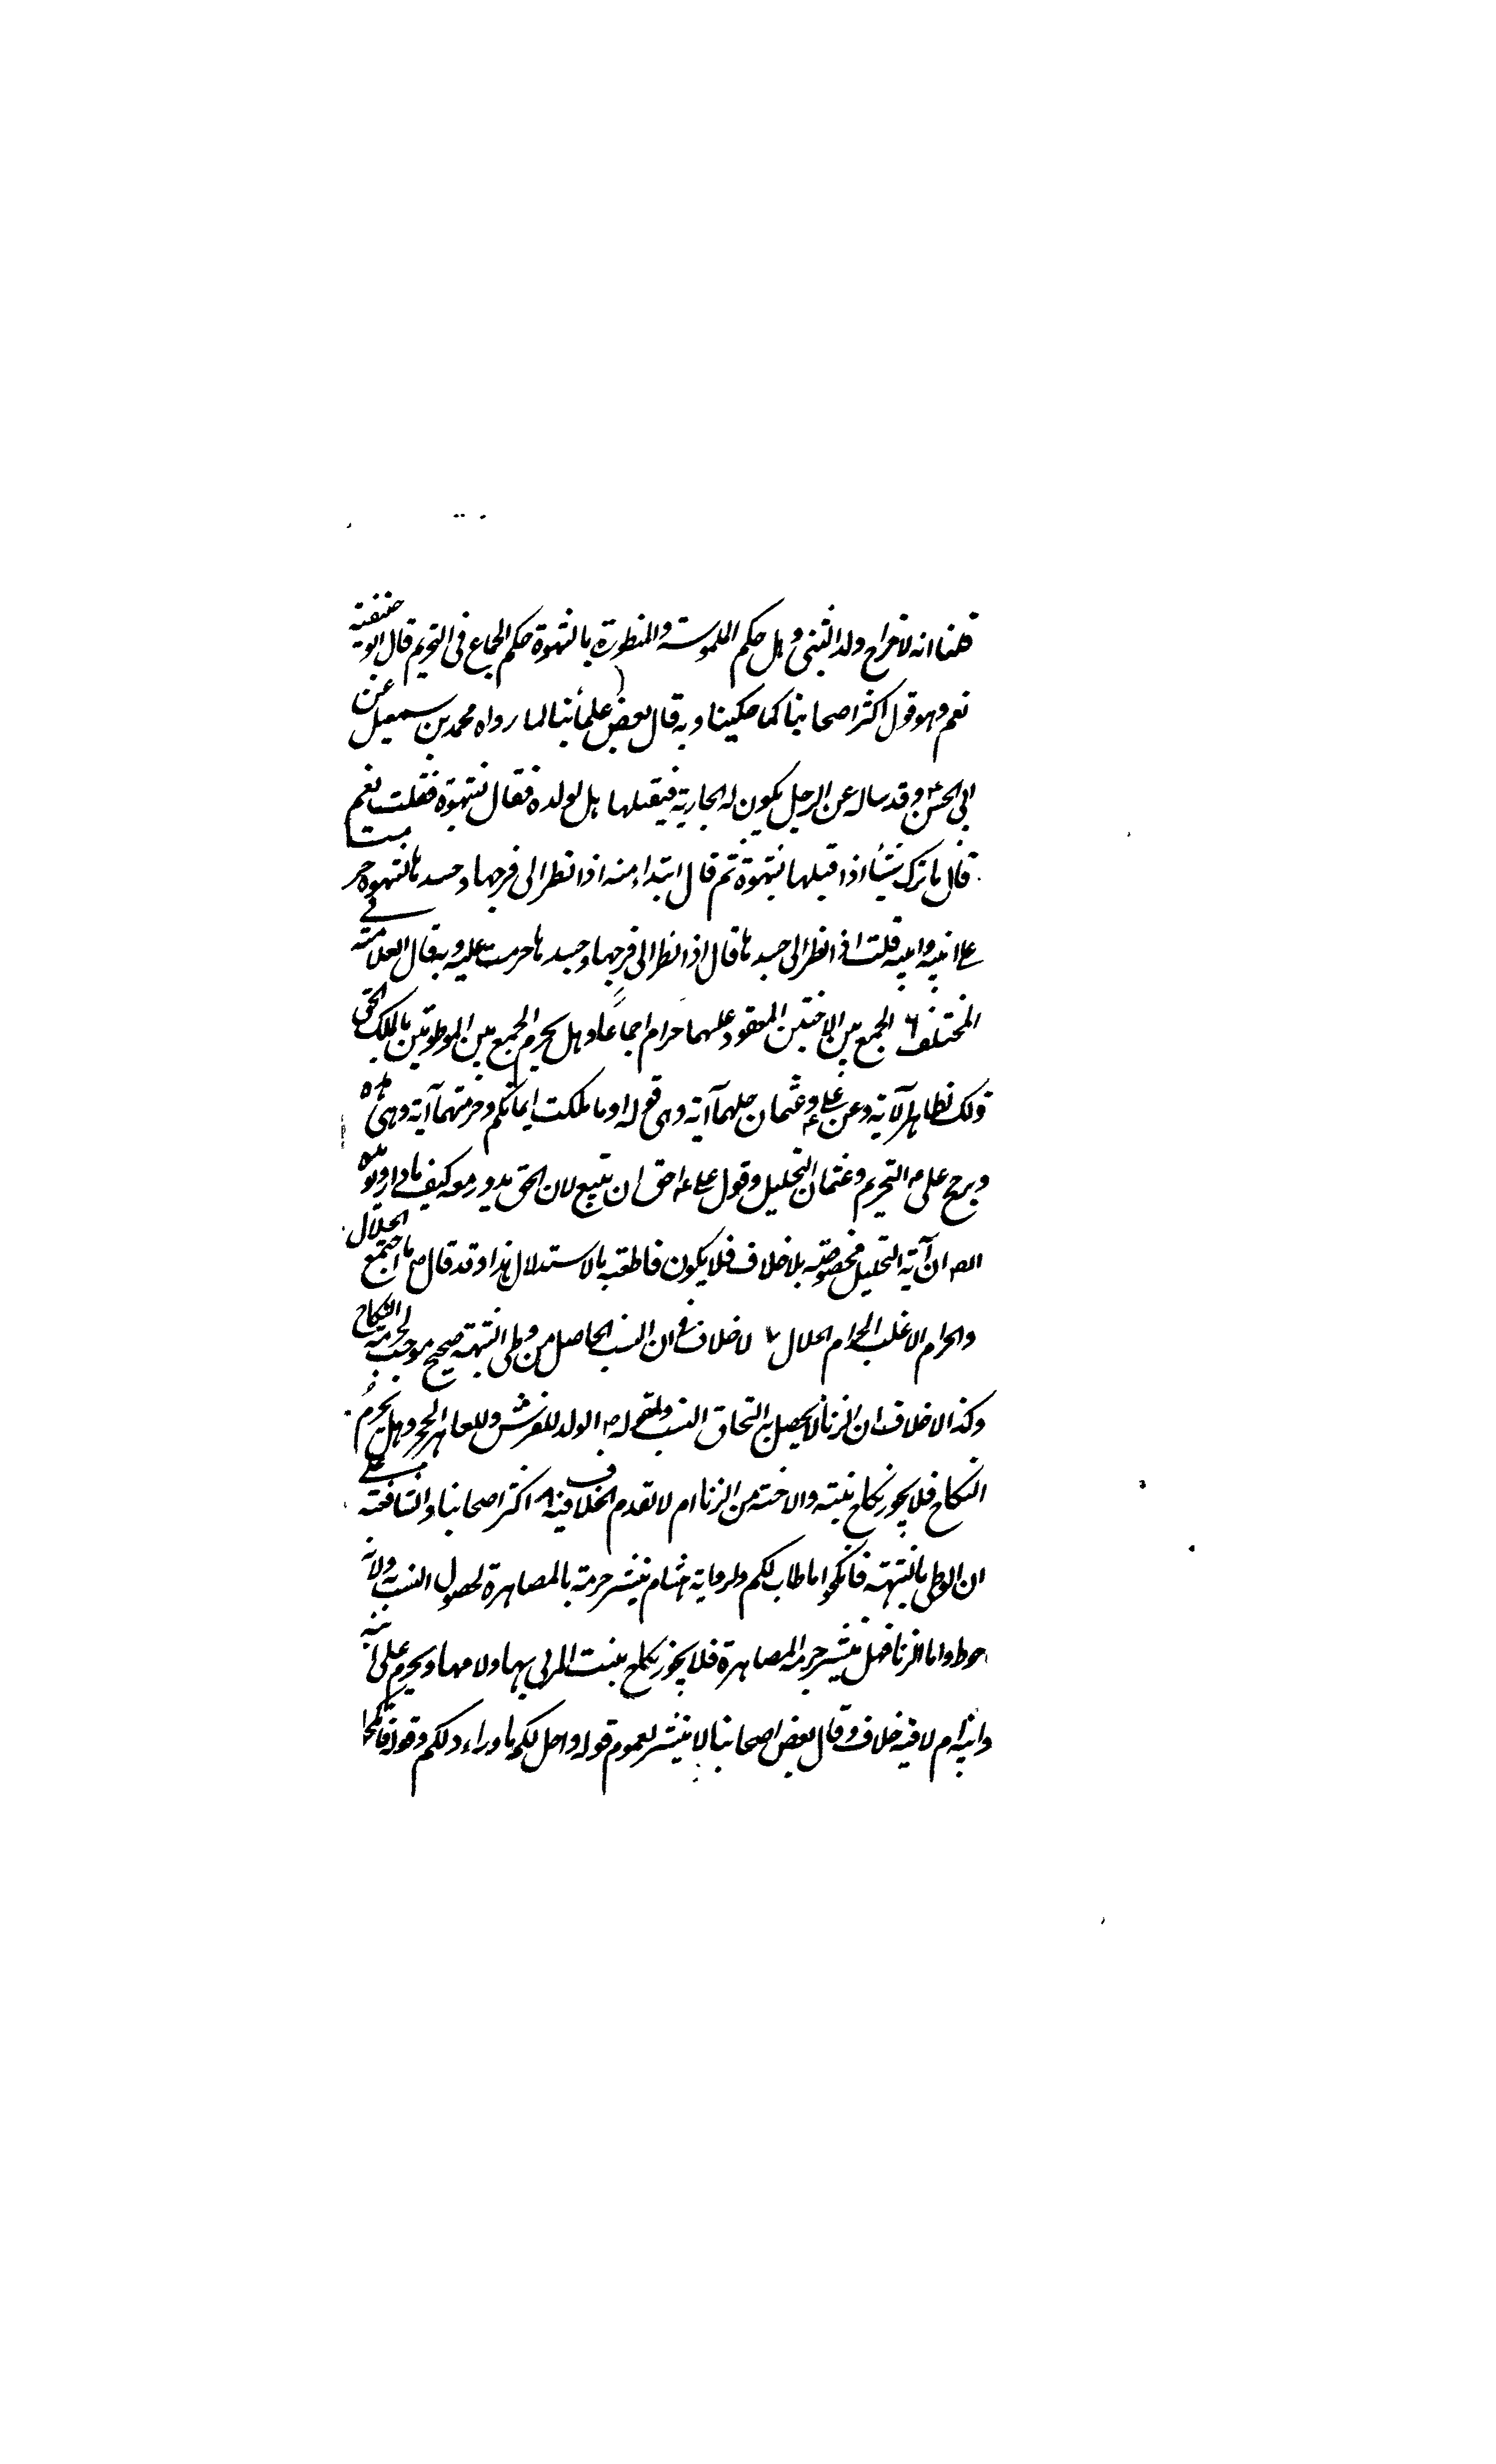 قلنا انه لاخراج ولد التبني وهل حكم الملموسة والمنظورة بالشهوة حكم الجماع في التحريم قال ابو حنيفة
نعم وهو قول اكثر اصحابنا كما حكينا وبه قال بعض علمائنا لما رواه محمد بن سمعيل عن
ابي الحسن ع وقد ساله عن الرجل يكون له الجارية فيقبلها هل لولده فقال بشهوة فقلت نعم
قال ما ترك شيئا اذا قبلها بشهوة ثم قال ابتداء منه اذا نظر الى فرجها وجسدها بشهوة حرمت
على ابيه وابنه قلت اذا نظر الى جسدها قال اذا نظر الى فرجها وجسدها حرمت عليه وبه قال العلامة في
المختلف ٦ الجمع بين الاختين المعقود عليهما حرام اجماعا وهل يحرم الجمع بين الموطوئتين بالملك الحق
ذلك لظاهر الآية وعن علي ع وعثمان حلهما آية وهي قوله او ما ملكت ايمانكم وحرمتهما آية وهي هذه
ورجح علي ع التحريم وعثمان التحليل وقول علي ع احق ان يتبع لان الحق يدور معه كيف ما دار
ان آية التحليل مخصوصة بلا خلاف فلا يكون قاطعة بالاستدلال هذا وقد قال ص ما اجتمع الحلال
والحرام الا غلب الحرام الحلال ٧ لا خلاف في ان النسب الحاصل من وطي الشبهة صحيح موجب لحرمة النكاح
وكذا لا خلاف ان الزنا لا يحصل به التحاق النسب لقوله ص الولد للفراش وللعاهر الحجر وهل يحرم
النكاح فلا يجوز نكاح بنته والاخته من الزنا ام لا تقدم الخلاف فيه ٨ اكثر اصحابنا والشافعية على
ان الوطي بالشبهة فانكحوا ما طاب لكم ولرواية هشام ينشر حرمة بالمصاهرة لحصول النسب به ولانه
احوط واما الزنا فهل ينشر حرمة المصاهرة فلا يجوز نكاح بنت المزني بها ولا امها ويحرم على ابنه
وابيه ام لا فيه خلاف وقال بعض اصحابنا لا ينشر لعموم قوله واحل لكم ما وراء ذلكم وقوله فانكحوا